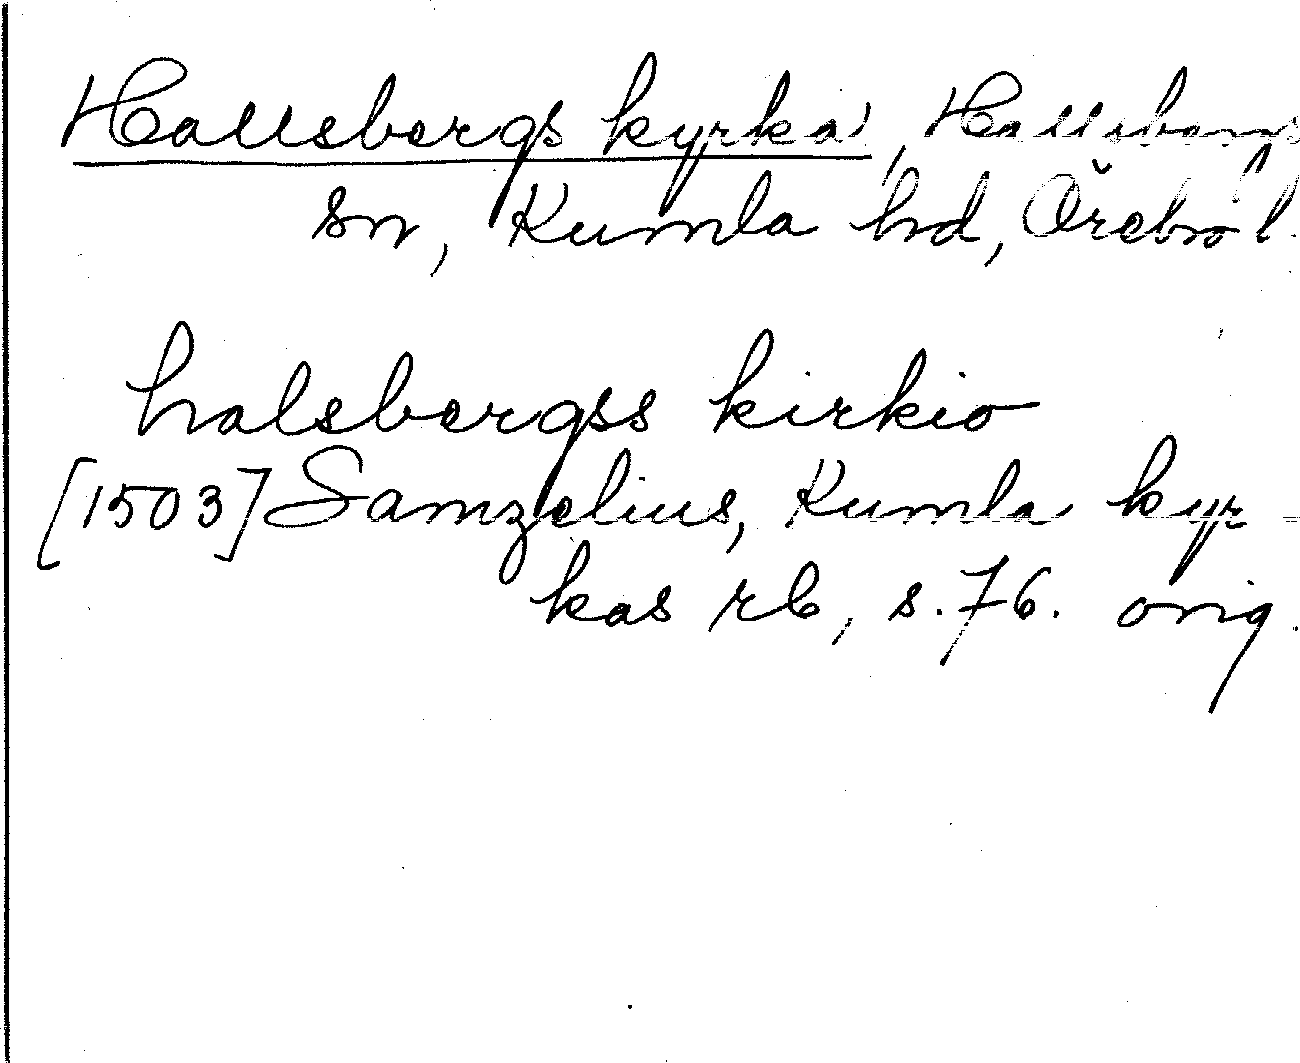 Hallsbergs kyrka, Hallsbergs
sn, Kumla hd, Örebro l.
halsbergss kirkio
[1503] Samzelius, Kumla kyr-
kas rb, s. 76. orig.